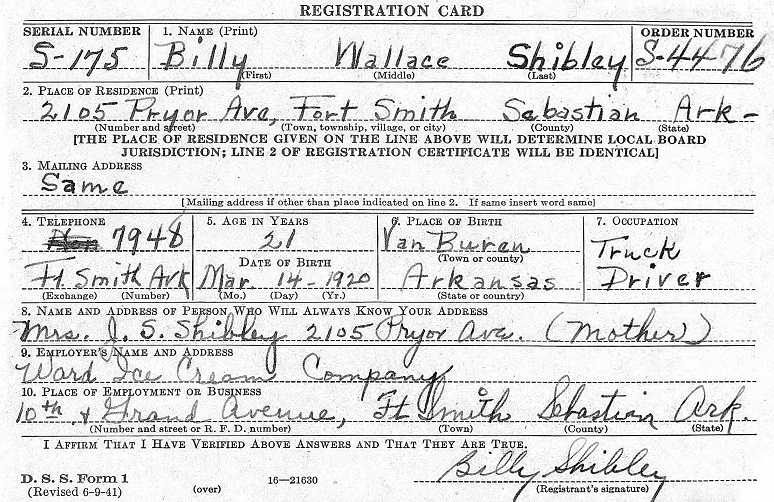 REGISTRATION CARD
SERIAL NUMBER 1. NAME (Print) ORDER NUMBER
S-175 Billy Wallace Shibley S-4476
(First) (Middle) (Last)
2. PLACE OF RESIDENCE (Print)
2105 Pryor Ave, Fort Smith Sebastian Ark-
(Number and street) (Town, township, village, or city) (County) (State)
[THE PLACE OF RESIDENCE GIVEN ON THE LINE ABOVE WILL DETERMINE LOCAL BOARD
JURISDICTION; LINE 2 OF REGISTRATION CERTIFICATE WILL BE IDENTICAL]
3. MAILING ADDRESS
Same
[Mailing address if other than place indicated on line 2. If same insert word same]
4. TELEPHONE 5. AGE IN YEARS 6. PLACE OF BIRTH 7. OCCUPATION
7948 21 Van Buren Truck
(Town or county)
DATE OF BIRTH
Ft. Smith Ark Mar. 14-1920 Arkansas Driver
(Exchange) (Number) (Mo.) (Day) (Yr.) (State or country)
8. NAME AND ADDRESS OF PERSON WHO WILL ALWAYS KNOW YOUR ADDRESS
Mrs. J. S. Shibley 2105 Pryor Ave. (Mother)
9. EMPLOYER'S NAME AND ADDRESS
Ward Ice Cream Company
10. PLACE OF EMPLOYMENT OR BUSINESS
10th & Grand Avenue, Ft Smith Sebastian Ark.
(Number and street or R. F. D. number) (Town) (County) (State)
I AFFIRM THAT I HAVE VERIFIED ABOVE ANSWERS AND THAT THEY ARE TRUE.
Billy Shibley
D. S. S. Form 1
(Revised 6-9-41) (over) 16—21630 (Registrant's signature)